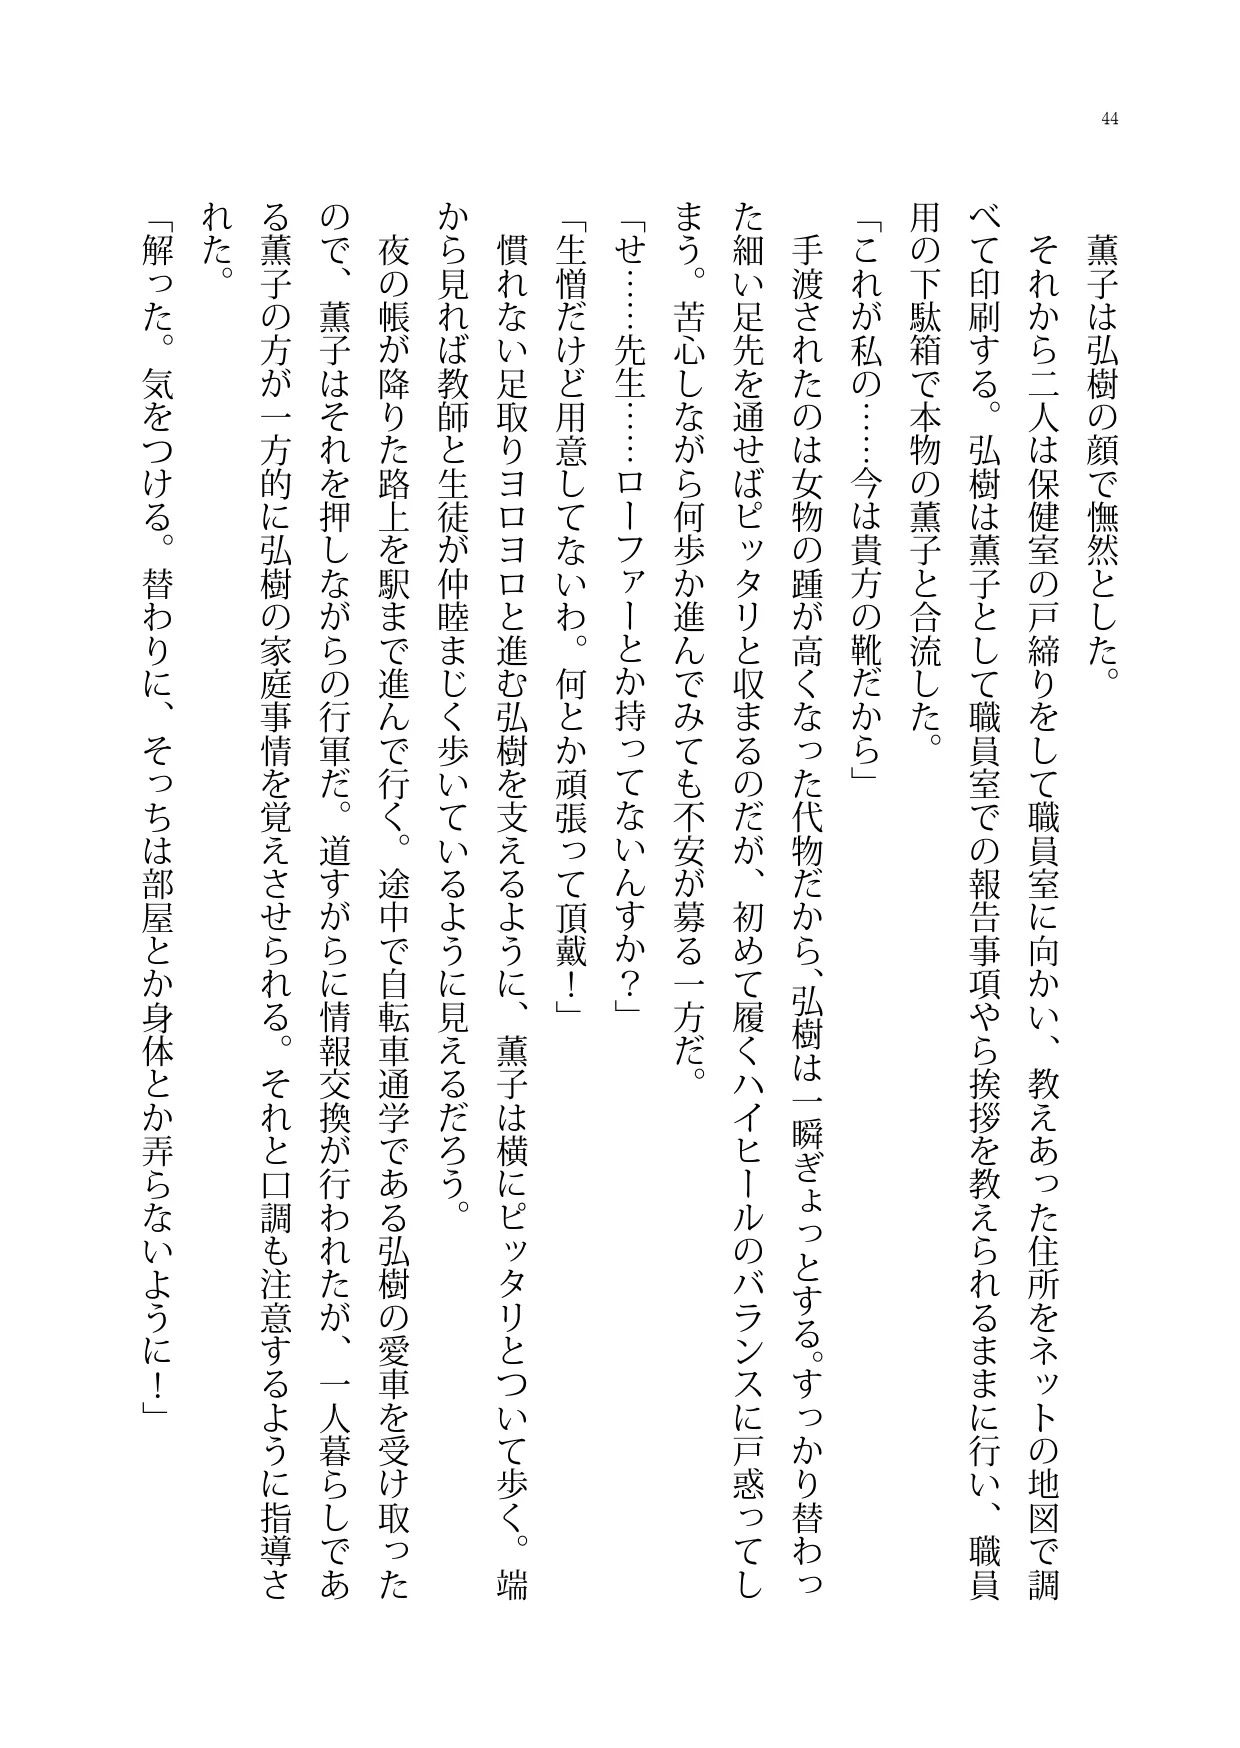 44
　薫子は弘樹の顔で憮然とした。
　それから二人は保健室の戸締りをして職員室に向かい、教えあった住所をネットの地図で調
べて印刷する。弘樹は薫子として職員室での報告事項やら挨拶を教えられるままに行い、職員
用の下駄箱で本物の薫子と合流した。
「これが私の……今は貴方の靴だから」
　手渡されたのは女物の踵が高くなった代物だから、弘樹は一瞬ぎょっとする。すっかり替わっ
た細い足先を通せばピッタリと収まるのだが、初めて履くハイヒールのバランスに戸惑ってし
まう。苦心しながら何歩か進んでみても不安が募る一方だ。
「せ……先生……ローファーとか持ってないんすか？」
「生憎だけど用意してないわ。何とか頑張って頂戴！」
　慣れない足取りヨロヨロと進む弘樹を支えるように、薫子は横にピッタリとついて歩く。端
から見れば教師と生徒が仲睦まじく歩いているように見えるだろう。
　夜の帳が降りた路上を駅まで進んで行く。途中で自転車通学である弘樹の愛車を受け取った
ので、薫子はそれを押しながらの行軍だ。道すがらに情報交換が行われたが、一人暮らしであ
る薫子の方が一方的に弘樹の家庭事情を覚えさせられる。それと口調も注意するように指導さ
れた。
「解った。気をつける。替わりに、そっちは部屋とか身体とか弄らないように！」